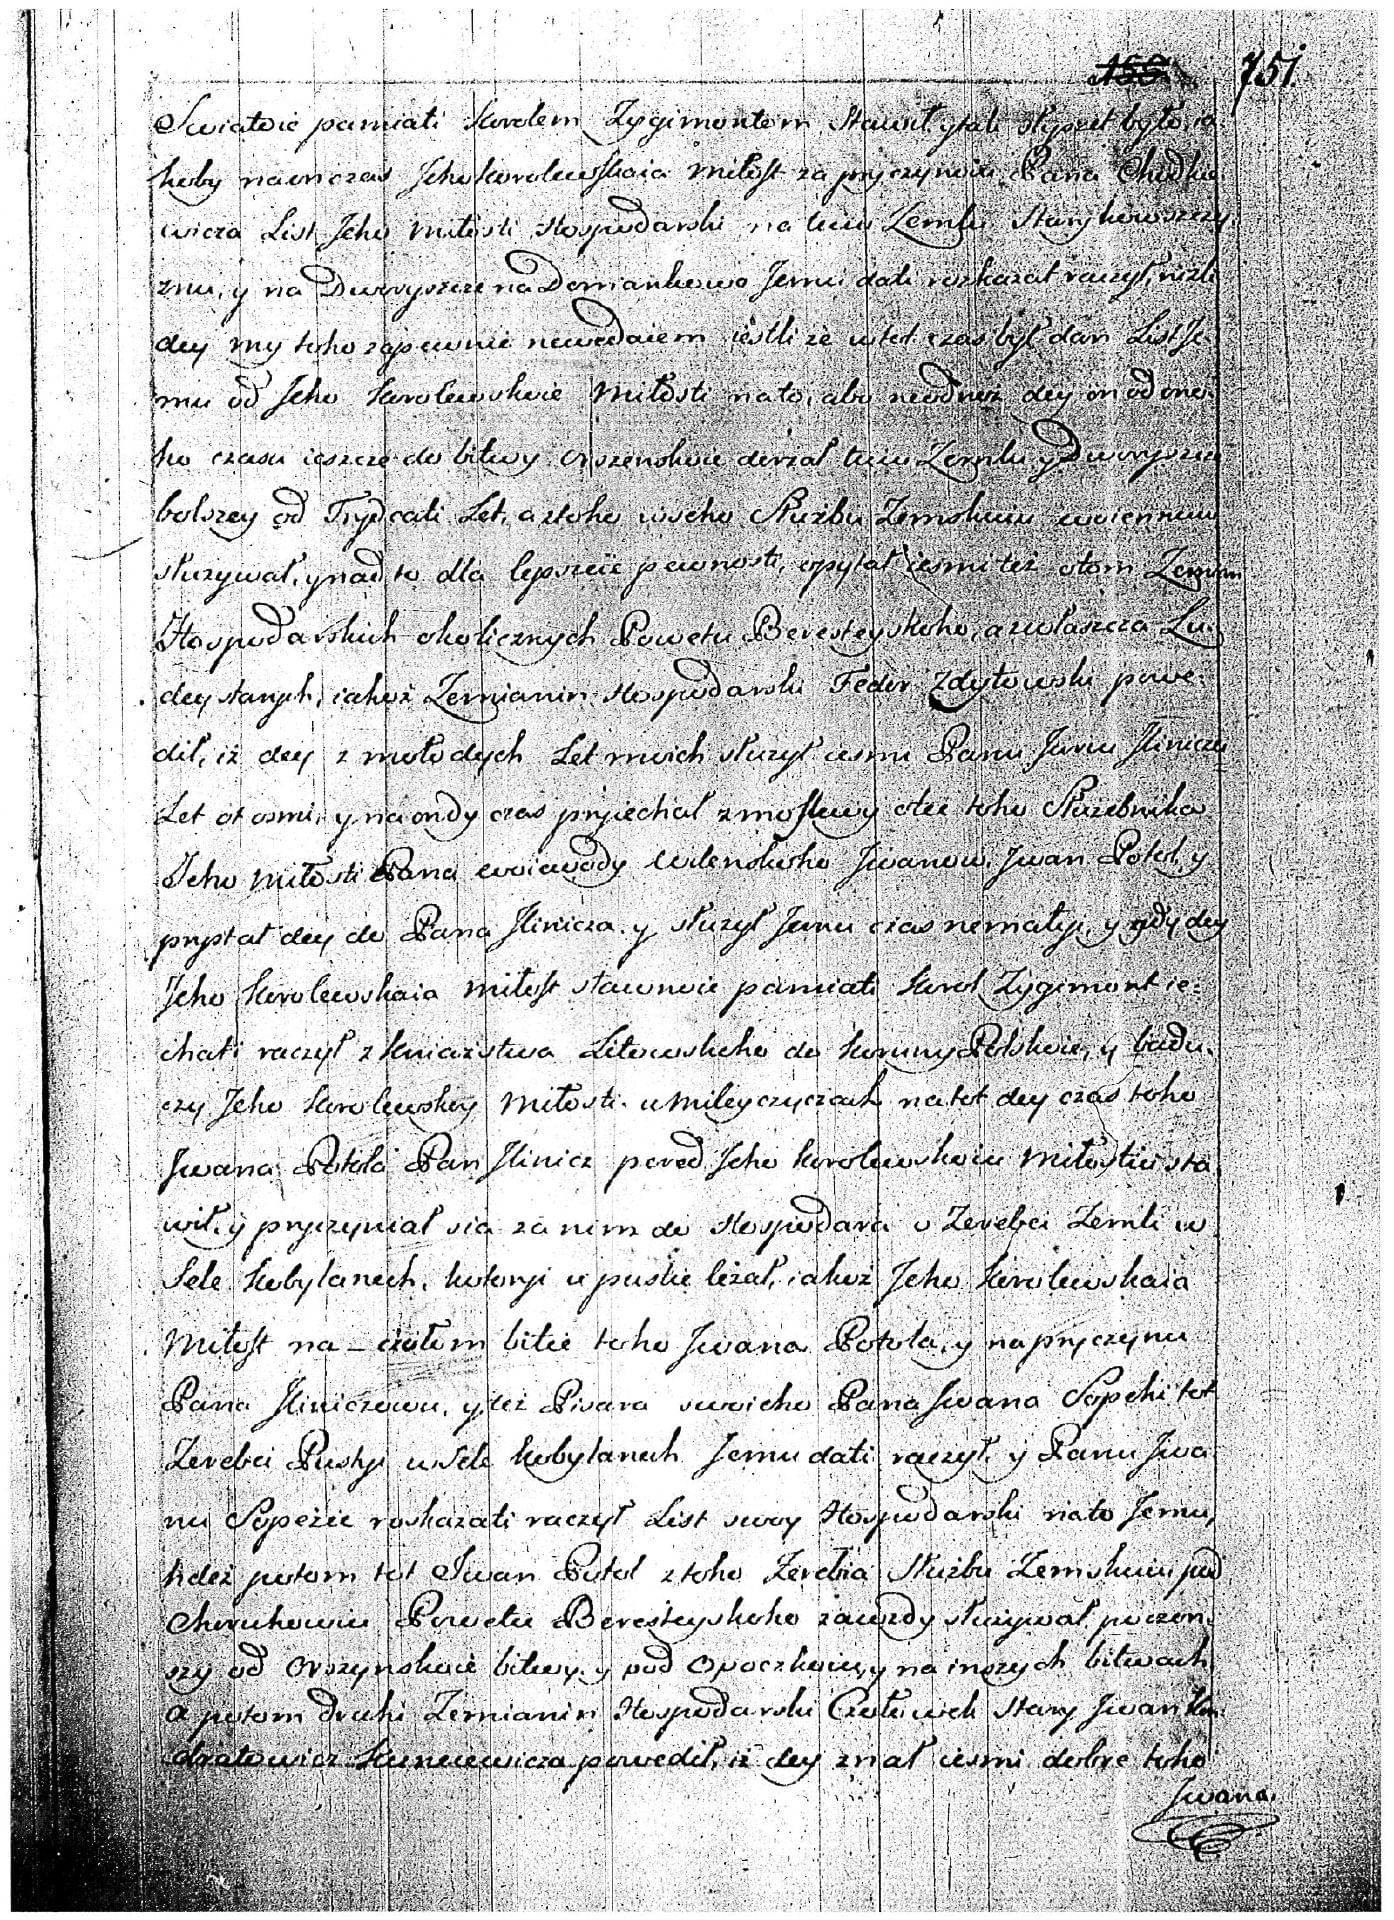 751.
Swiatoie pamiati Karolem Zygimontom, Stawił y tak słyszet było, ia
koby naonczas Jeho Karolewskaia miłost za pryczynoiu Pana Chodko
wicza List Jeho miłosti Hospodarski na tuiu Zemlu Starykowszczy
znu, y na Dworyszcze na Domiankowo Jemu dati rozkazat raczył, nizli
dey my toho zapewnie newedaiem iestli że w tot czas był dan List Je
mu od Jeho Karolewskoie Miłosti na to, abo ne odnoż dey on od ono
ho czasu ieszcze do bitwy Orszenskoie derżał tuiu Zemlu y Dworyszcze
bolszey od Trydcati Let, a z toho wseho Służbu Zemskuiu woiennuiu
służywał, y nad to dla lepszeie pewnosti, opytał iesmi też o tom Zemian
Hospodarskich okolicznych Powetu Beresteyskoho, a zwłaszcza Lu
dey starych, iakoż Zemianin Hospodarski Fedor Zdytowski powe
dił, iż dey z mołodych Let moich służył iesmi Panu Juriu Jliniczu
Let ot osmi, y na ondy czas pryiechał z Moskwy otec toho Służebnika
Jeho Miłosti Pana woiewody Wilenskoho Jwanow Jwan Potoł, y
prystał dey do Pana Jlinicza y służył Jemu czas nemałyi, y gdy dey
Jeho Karolewskaia miłost sławnoie pamiati Karol Zygimont ie-
chati raczył z Kniazstwa Litowskoho do Koruny Polskoie, y budu
czy Jeho Karolewskoy Miłosti u Mileyczyczach na tot dey czas toho
Jwana Potoła Pan Jlinicz pered Jeho Karolewskoiu Miłostiu sta
wił, y pryczyniał sia za nim do Hospodara o Żerebei Zemli w
Sele Kobylanech, kotoryi u puste leżał, iakoż Jeho Karolewskaia
Miłost na czołom bitie toho Jwana Potoła, y na pryczynu
Pana Jliniczowu, y też Pisara swoieho Pana Jwana Sopehi tot
Żerebei Pustyi w Sele Kobylanech Jemu dati raczył, y Panu Jwa
nu Sopeżie roskazati raczył List swoy Hospodarski na to Jemu,
hdeż potom tot Jwan Potoł z toho Żerebia Służbu Zemskuiu pod
Choruhowiu Powetu Beresteyskoho zawżdy służywał poczon
szy od Orszynskoie bitwy, y pod Opoczkoiu, y na inszych bitwach
a potom druhi Zemianin Hospodarski Czołowek Stary Jwan Kon
dratowicz Kuncewicza powedił, iż dey znał iesmi dobre toho
Jwana.